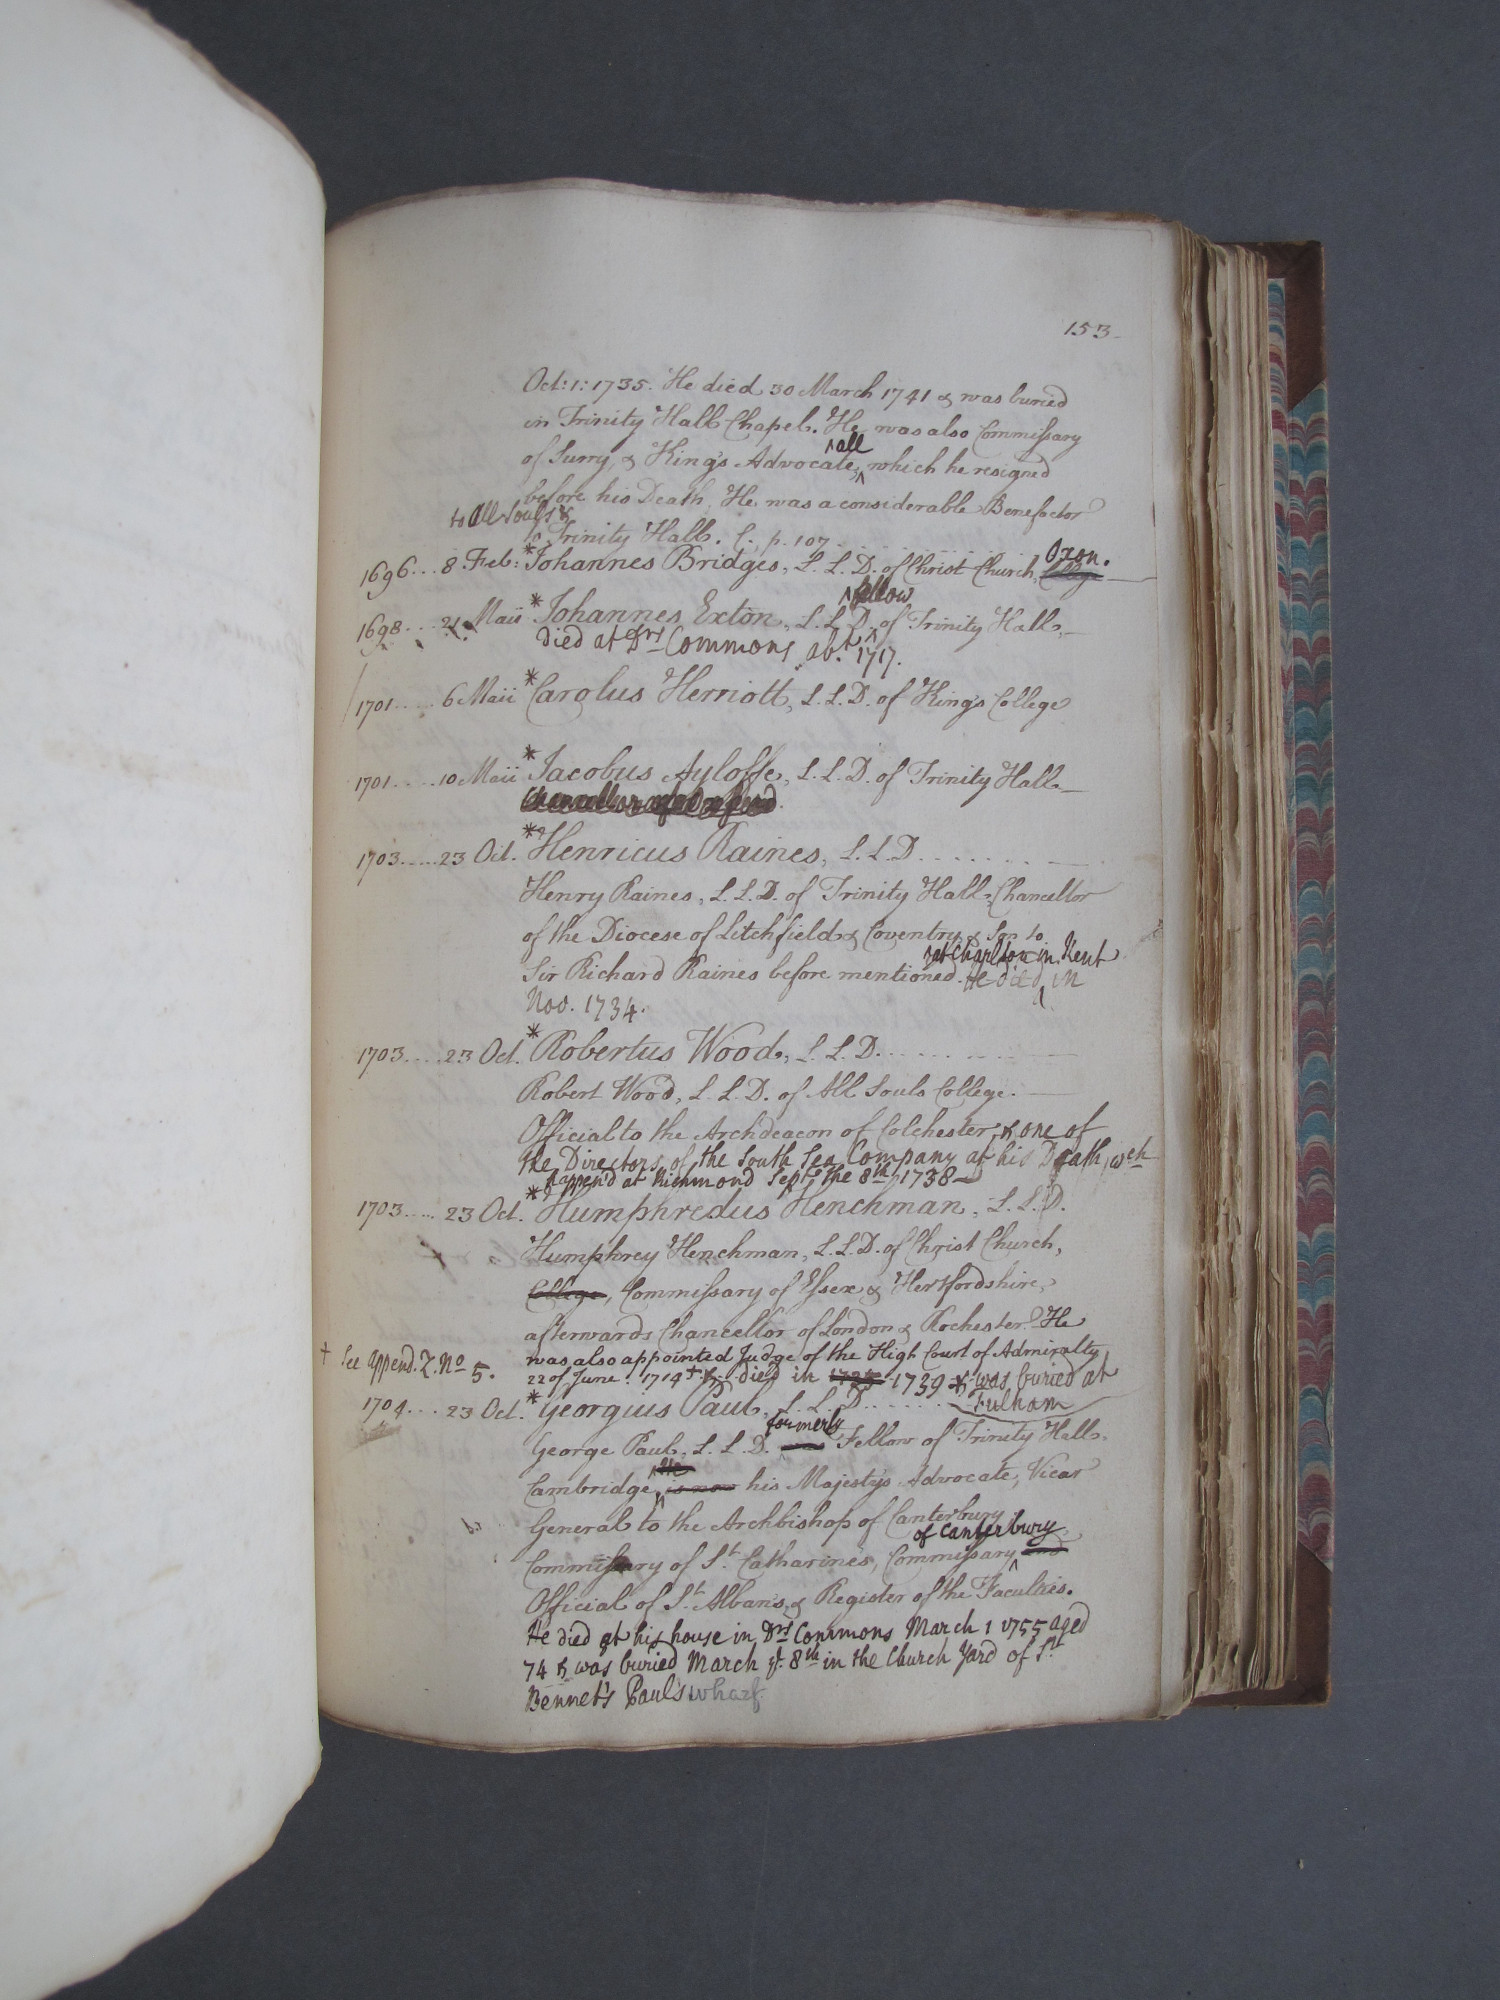 153
Oct: 1: 1735. He died 30 March 1741 & was buried
in Trinity Hall Chapel. He was also Commissary
all
of Surry, & King's Advocate, which he resigned
before his Death. He was a considerable Benefactor
to All Souls &
to Trinity Hall. C. p. 107
Oxon.
1696... 8 Feb: *Johannes Bridges, L. L. D. of Christ Church, College
fellow
1698.... 21 Maii *Johannes Exton, L. L. D. of Trinity Hall
died at Drs Commons abt. 1717.
1701..... 6 Maii *Carolus Herriott, L. L. D. of King's College
1701..... 10 Maii *Jacobus Ayloffe, L. L. D. of Trinity Hall
1703..... 23 Oct. *Henricus Raines, L. L. D.......
Henry Raines, L. L. D. of Trinity Hall, Chancellor
of the Diocese of Litchfield & Coventry, & Son to
at Charlton in Kent
Sir Richard Raines before mentioned. He died in
Nov. 1734.
1703.... 23 Oct. *Robertus Wood, L. L. D.........
Robert Wood, L. L. D. of All Souls College.
Official to the Archdeacon of Colchester & one of
the Directors of the South Sea Company at his Death, wch
happen'd at Richmond Septr the 8th, 1738
1703..... 23 Oct. *Humphredus Henchman, L. L. D.
Humphrey Henchman, L. L. D. of Christ Church,
College, Commissary of Essex & Hertfordshire,
afterwards Chancellor of London & Rochester. He
was also appointed Judge of the High Court of Admiralty
† See append. Z. No 5.
22 of June. 1714 † & died in 1739 & was buried at
Fulham
1704... 23 Oct. *Georgius Paul, L. L. D.......
formerly
George Paul, L. L. D. was Fellow of Trinity Hall.
Cambridge, is now his Majesty's Advocate, Vicar
General to the Archbishop of Canterbury
of Canterbury
Commissary of St. Catharine's, Commissary and
Official of St. Alban's, & Register of the Faculties.
He died at his house in Drs Commons March 1 1755 aged
74 & was buried March ye 8th in the Church Yard of St
Bennet's Paul's wharf.